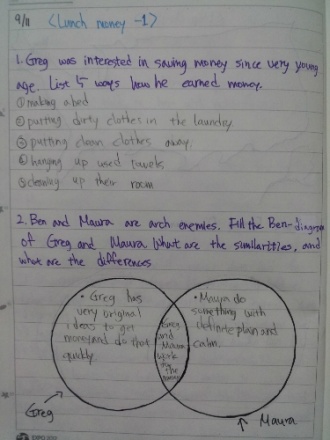 9/11 <Lunch money -1>
1. Greg was interested in saving money since very young
age. List 5 ways how he earned money.
① making a bed
② putting dirty clothes in the laundry
③ putting clean clothes away.
④ hanging up used towels
⑤ cleaning up their room
2. Ben and Maura are arch enemies. Fill the Ben-diagram
of Greg and Maura. What are the similarities, and
what are the differences
• Greg has
very original
ideas to get
money and do that
quickly.
Greg
and
Maura
work
for
the
money
• Maura do
something with
definite plan and
calm.
Greg
Maura